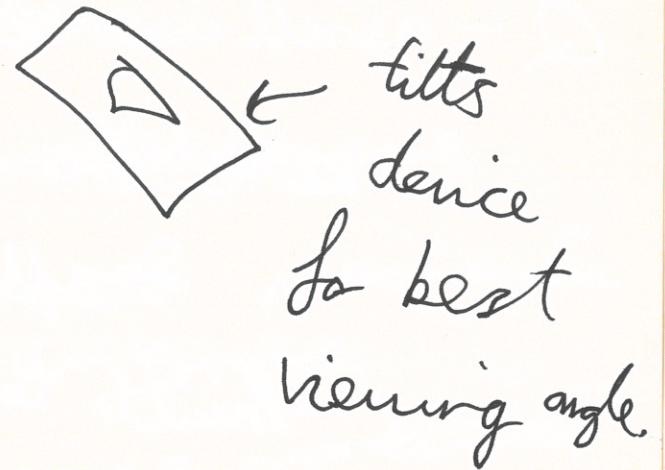 tilts
device
for best
viewing angle.